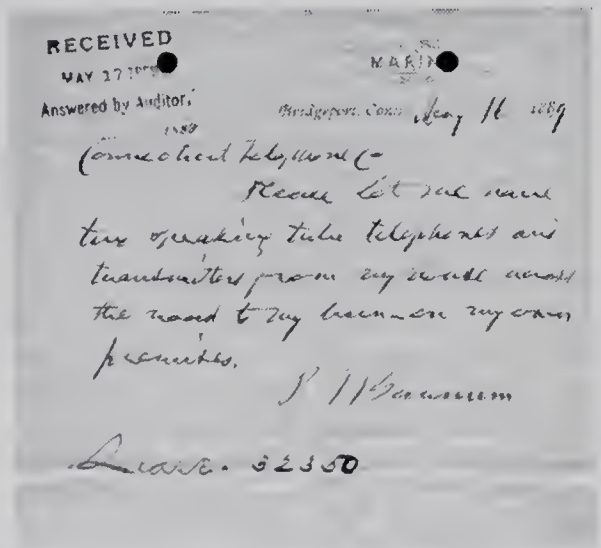 RECEIVED
MAY 17
Answered by Auditor,
188
MARIN
Bridgeport, Conn. May 16 1889
Connecticut Telephone Co
Please let me have
two speaking tube telephones and
transmitters from my house across
the road to my barn - on my own
premises.
P T Barnum
Lease. 32350